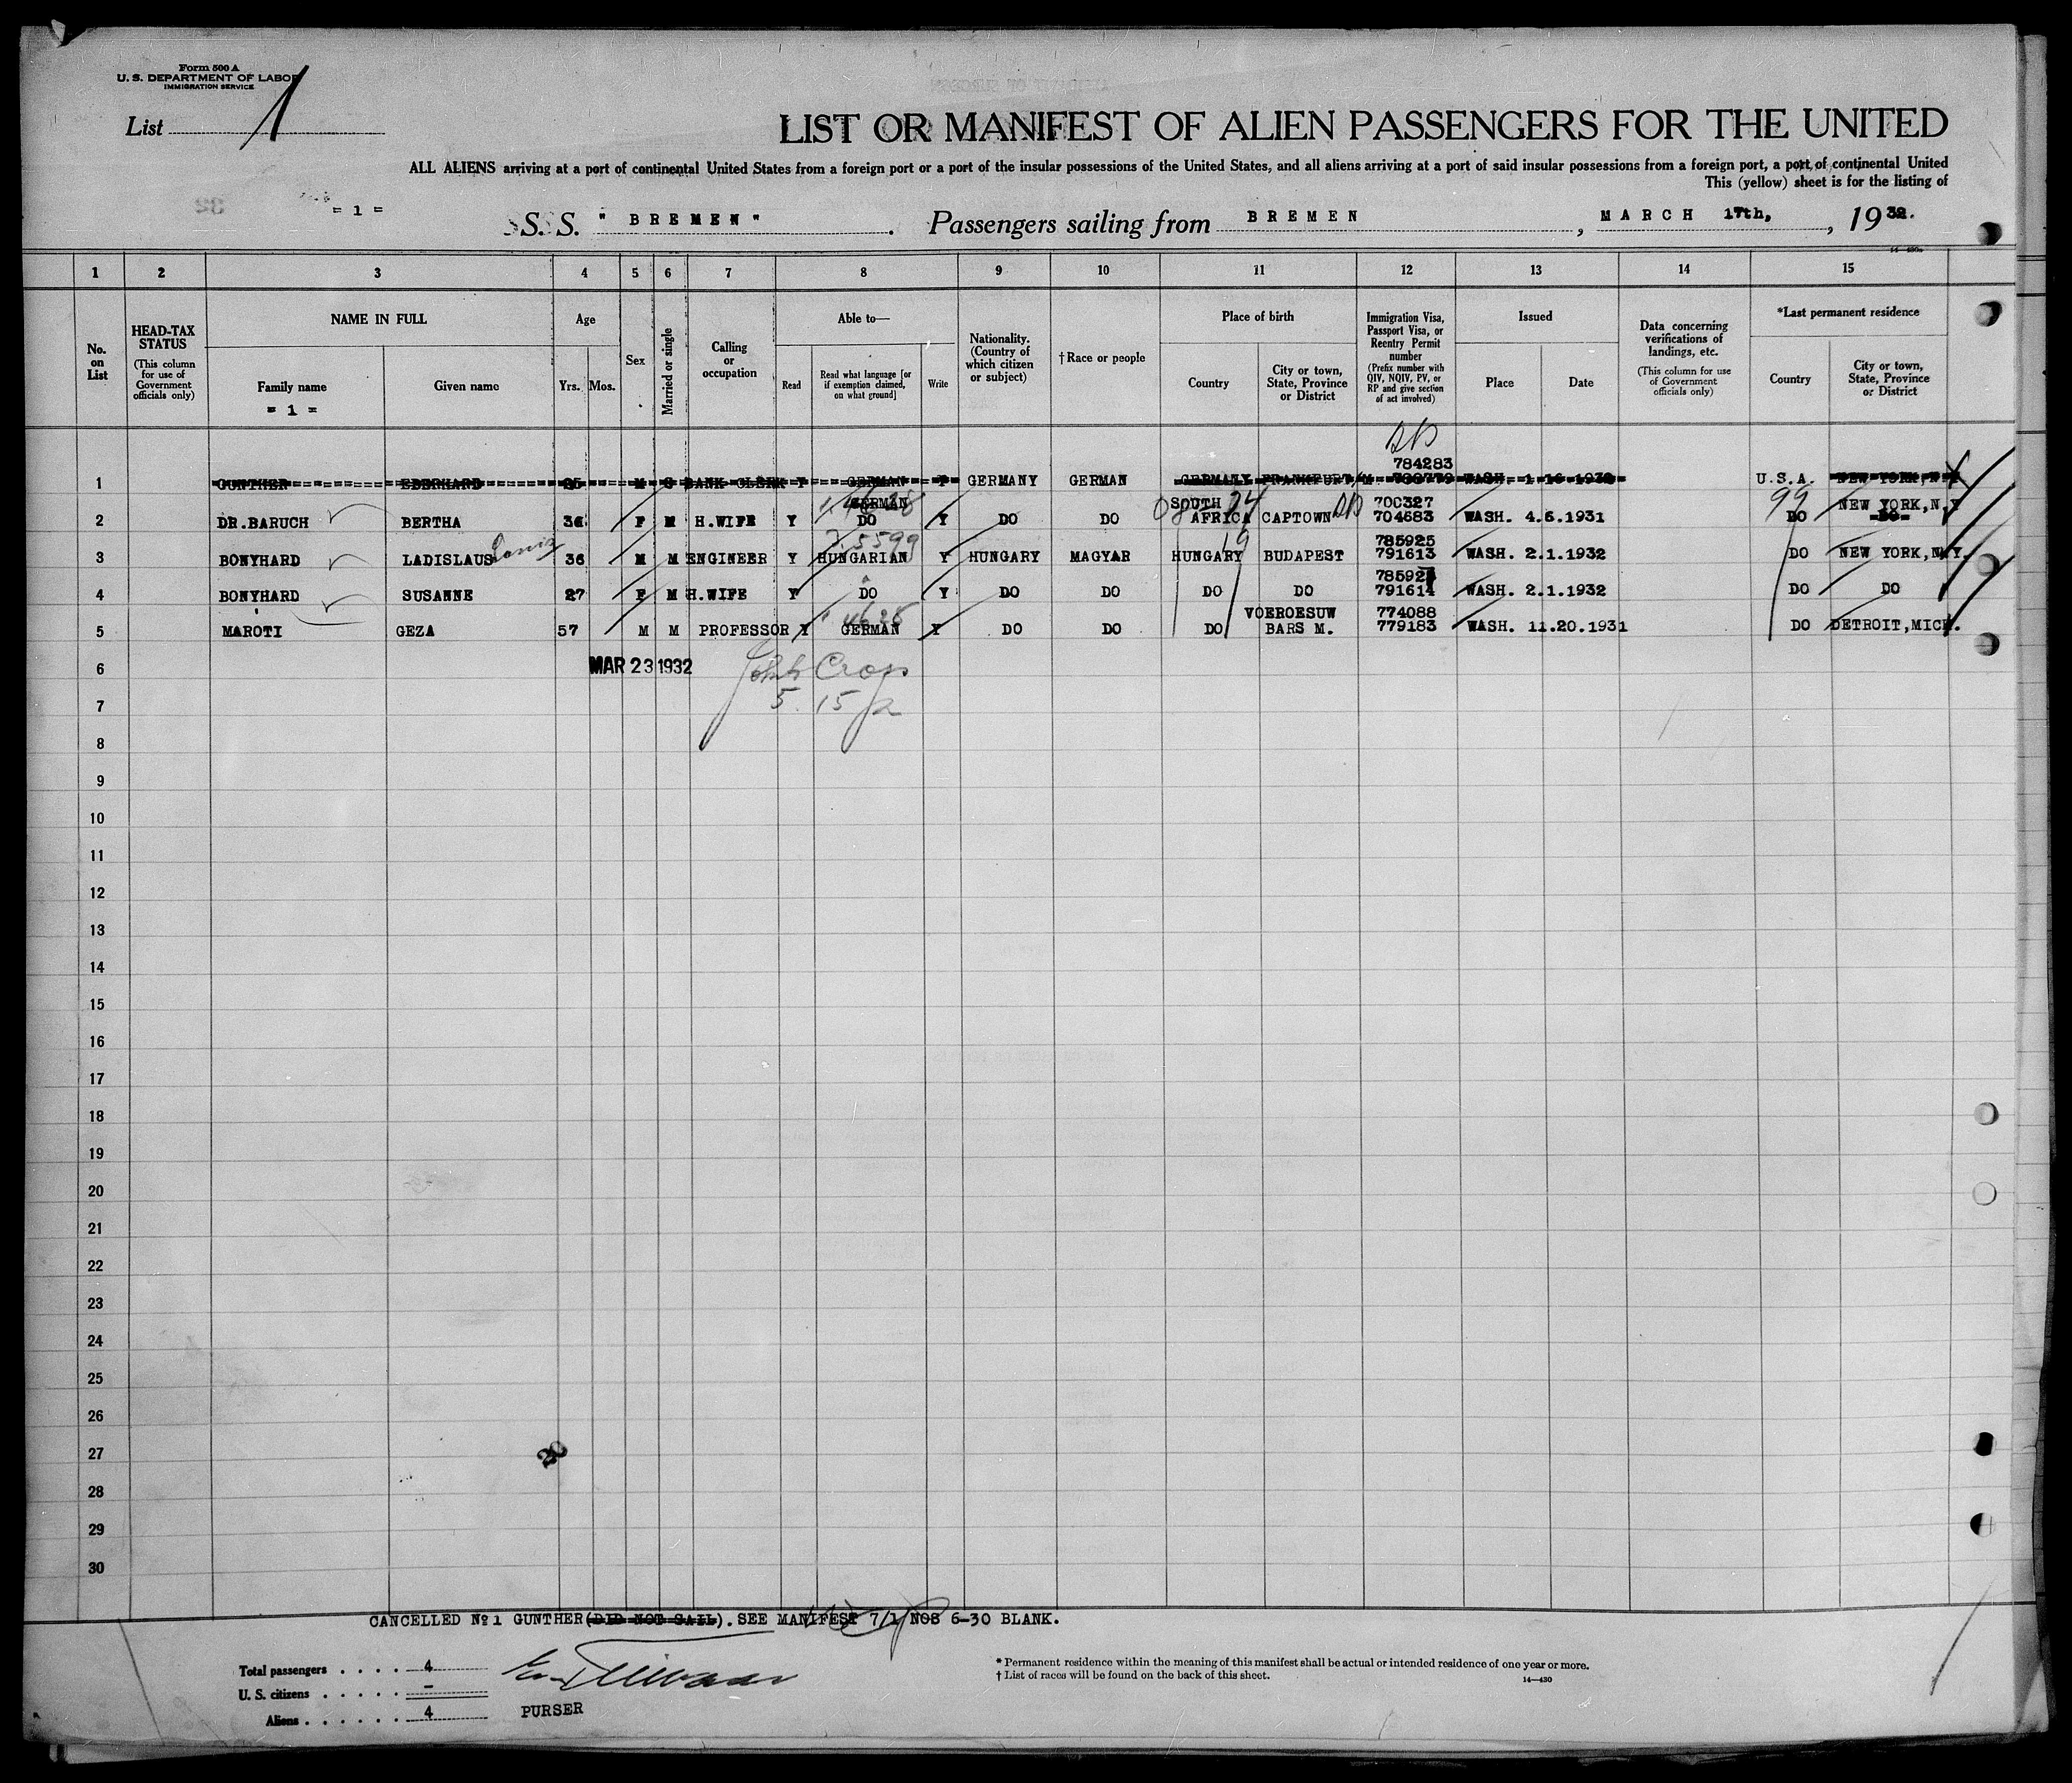 Form 500 A
U. S. DEPARTMENT OF LABOR
IMMIGRATION SERVICE
List 1
LIST OR MANIFEST OF ALIEN PASSENGERS FOR THE UNITED
ALL ALIENS arriving at a port of continental United States from a foreign port or a port of the insular possessions of the United States, and all aliens arriving at a port of said insular possessions from a foreign port, a port of continental United
This (yellow) sheet is for the listing of
= 1 =
S. S. " BREMEN " . Passengers sailing from BREMEN , MARCH 17th, , 1932.
1 2 3 4 5 6 7 8 9 10 11 12 13 14 15
No. on List
HEAD-TAX STATUS
(This column for use of Government officials only)
NAME IN FULL
Family name
= 1 =
Given name
Age
Yrs. Mos.
Sex
Married or single
Calling or occupation
Able to—
Read
Read what language [or if exemption claimed, on what ground]
Write
Nationality. (Country of which citizen or subject)
†Race or people
Place of birth
Country
City or town, State, Province or District
Immigration Visa, Passport Visa, or Reentry Permit number
(Prefix number with QIV, NQIV, PV, or RP and give section of act involved)
Issued
Place
Date
Data concerning verifications of landings, etc.
(This column for use of Government officials only)
*Last permanent residence
Country
City or town, State, Province or District
784283
1 GUNTHER EBERHARD 25 M S BANK CLERK Y GERMAN Y GERMANY GERMAN GERMANY FRANKFURT/M WASH. 1.16.1932 U.S.A. NEW YORK,N.Y
GERMAN SOUTH 700327 NEW YORK,N.Y
2 DR.BARUCH BERTHA 36 F M H.WIFE Y DO Y DO DO AFRICA CAPTOWN 704683 WASH. 4.6.1931 DO DO
785925
3 BONYHARD LADISLAUS Louis 36 M M ENGINEER Y HUNGARIAN Y HUNGARY MAGYAR HUNGARY BUDAPEST 791613 WASH. 2.1.1932 DO NEW YORK,N.Y.
4 BONYHARD SUSANNE 27 F M H.WIFE Y DO Y DO DO DO DO 791614 WASH. 2.1.1932 DO DO
VOEROESUW 774088
5 MAROTI GEZA 57 M M PROFESSOR Y GERMAN Y DO DO DO BARS M. 779183 WASH. 11.20.1931 DO DETROIT,MICH.
6 MAR 23 1932
7
8
9
10
11
12
13
14
15
16
17
18
19
20
21
22
23
24
25
26
27
28
29
30
CANCELLED No 1 GUNTHER(DID NOT SAIL). SEE MANIFEST 7/1 NOS 6-30 BLANK.
Total passengers . . . . 4
U. S. citizens . . . . . –
Aliens . . . . . . 4
PURSER
* Permanent residence within the meaning of this manifest shall be actual or intended residence of one year or more.
† List of races will be found on the back of this sheet.
14—430